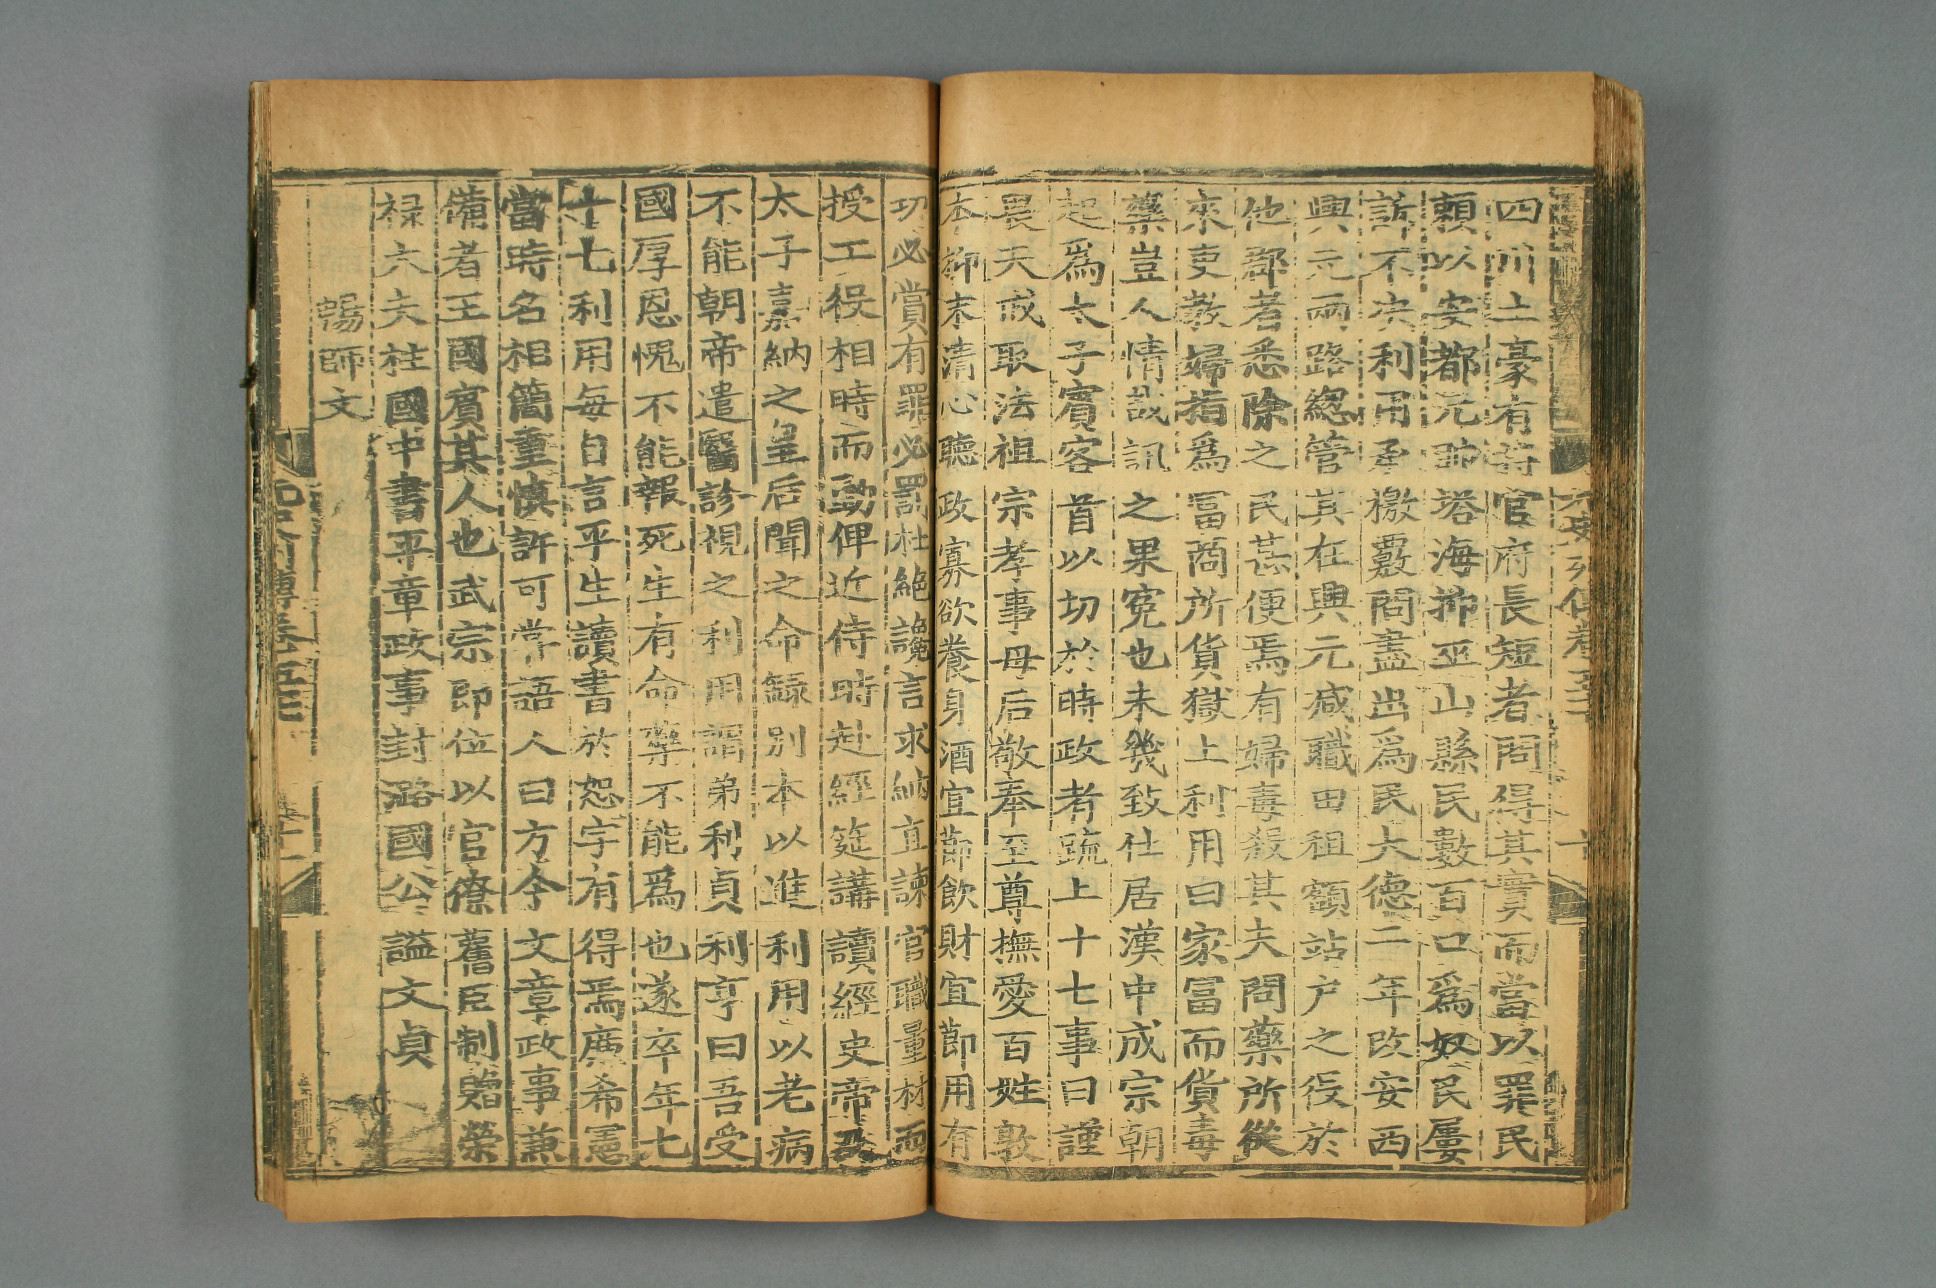 四川土豪有持官府長短者問得其實而當以罪民
賴以安都元帥塔海抑巫山縣民數百口為奴民屢
訴不決利用承檄覈問盡出爲民大德二年改安西
興元兩路緫管其在興元减職田租額站户之役於
他郡者悉除之民甚便焉有婦毒殺其夫問藥所從
來吏教婦指爲冨商所貨獄上利用曰家冨而貨毒
藥豈人情哉訊之果寃也未幾致仕居漢中成宗朝
起爲太子賓客首以切於時政者疏上十七事曰謹
畏天戒取法祖宗孝事母后敬奉至尊撫愛百姓敦
本抑末清心聽政寡欲養身酒宜節飲財宜節用有
功必賞有罪必罰杜絶讒言求納直諫官職量材而
授工役相時而動俾近侍時赴經筵講讀經史帝及
太子嘉納之皇后聞之命録别本以進利用以老病
不能朝帝遣醫診視之利用謂弟利貞利亨曰吾受
國厚恩愧不能報死生有命藥不能爲也遂卒年七
十七利用每自言平生讀書於恕字有得焉廉希憲
當時名相簡重慎許可常語人曰方今文章政事兼
備者王國賓其人也武宗即位以官僚舊臣制贈榮
禄大夫柱國中書平章政事封潞國公謚文貞
暢師文